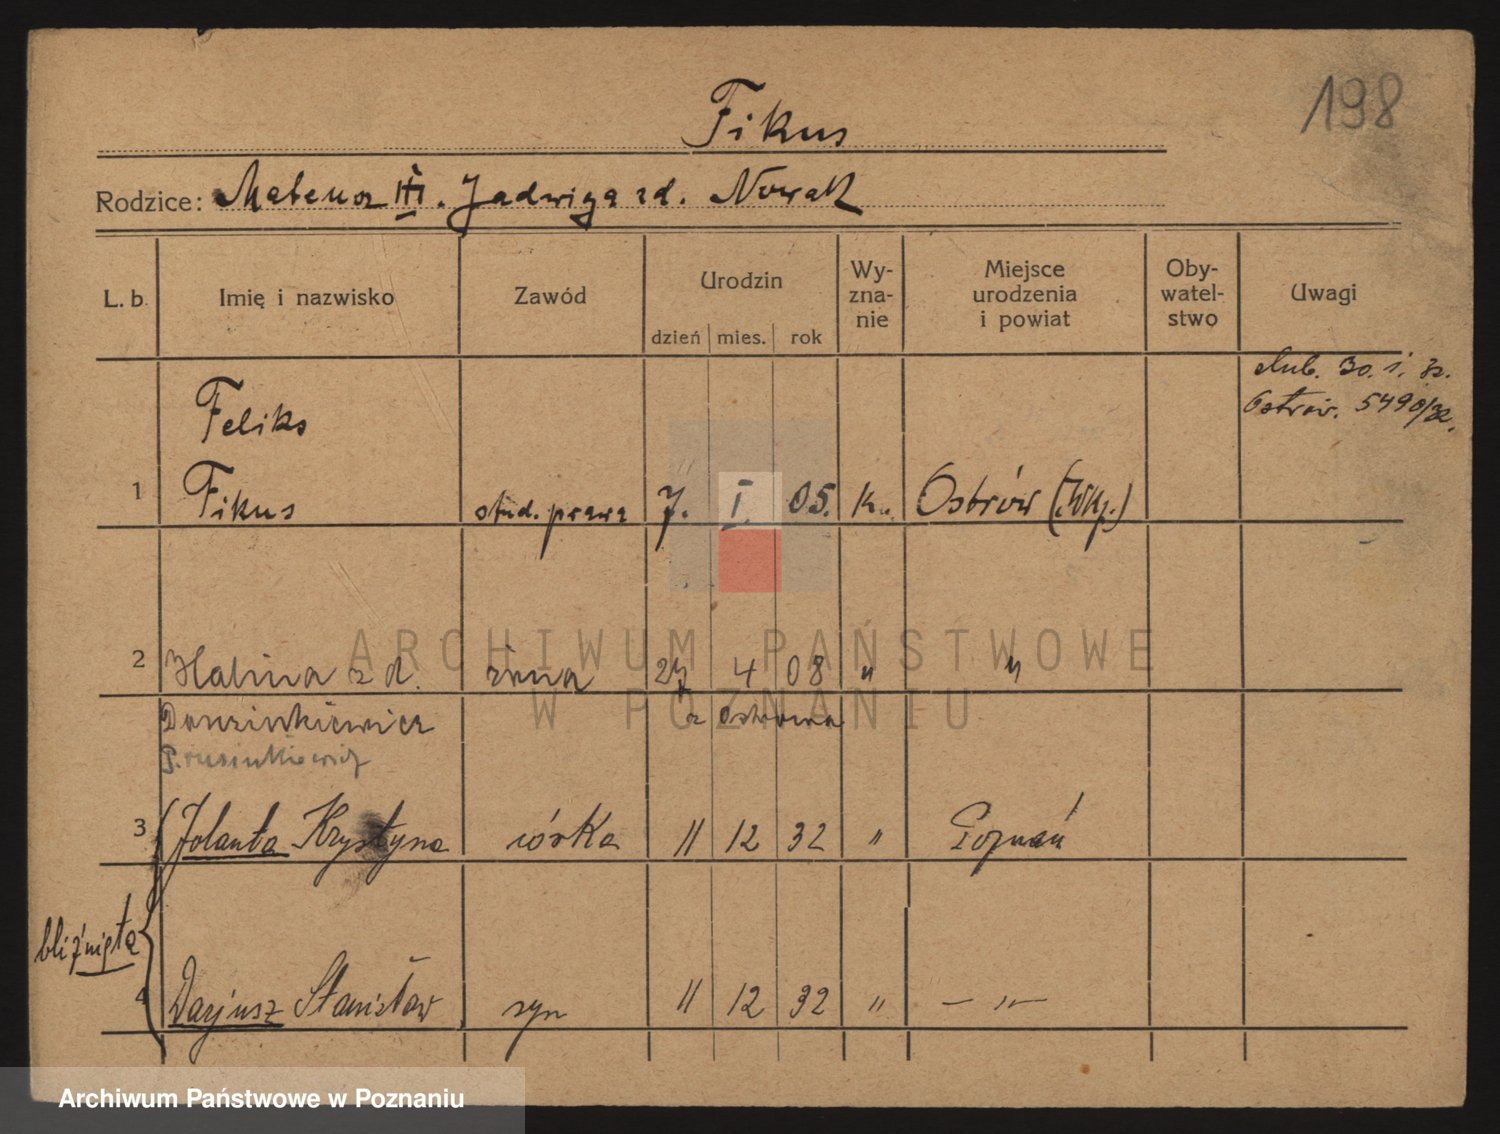 198
Fikus
Rodzice: Mateusz III. Jadwiga zd. Nowak
L. b. Imię i nazwisko Zawód Urodzin dzień mies. rok Wy-zna-nie Miejsce urodzenia i powiat Oby-watel-stwo Uwagi
ślub. 30. 1. 32.
Ostrów. 5490/32.
Feliks
1 Fikus stud. prawa 7. I. 05. k. Ostrów (Wkp.)
2 Halina z d. żona 27 4 08 " "
z Ostrowa
3 Jolanta Krystyna córka 11 12 32 " Poznań
bliźnięta
4 Darjusz Stanisław syn 11 12 32 " — " —
ARCHIWUM PAŃSTWOWE
W POZNANIU
Archiwum Państwowe w Poznaniu